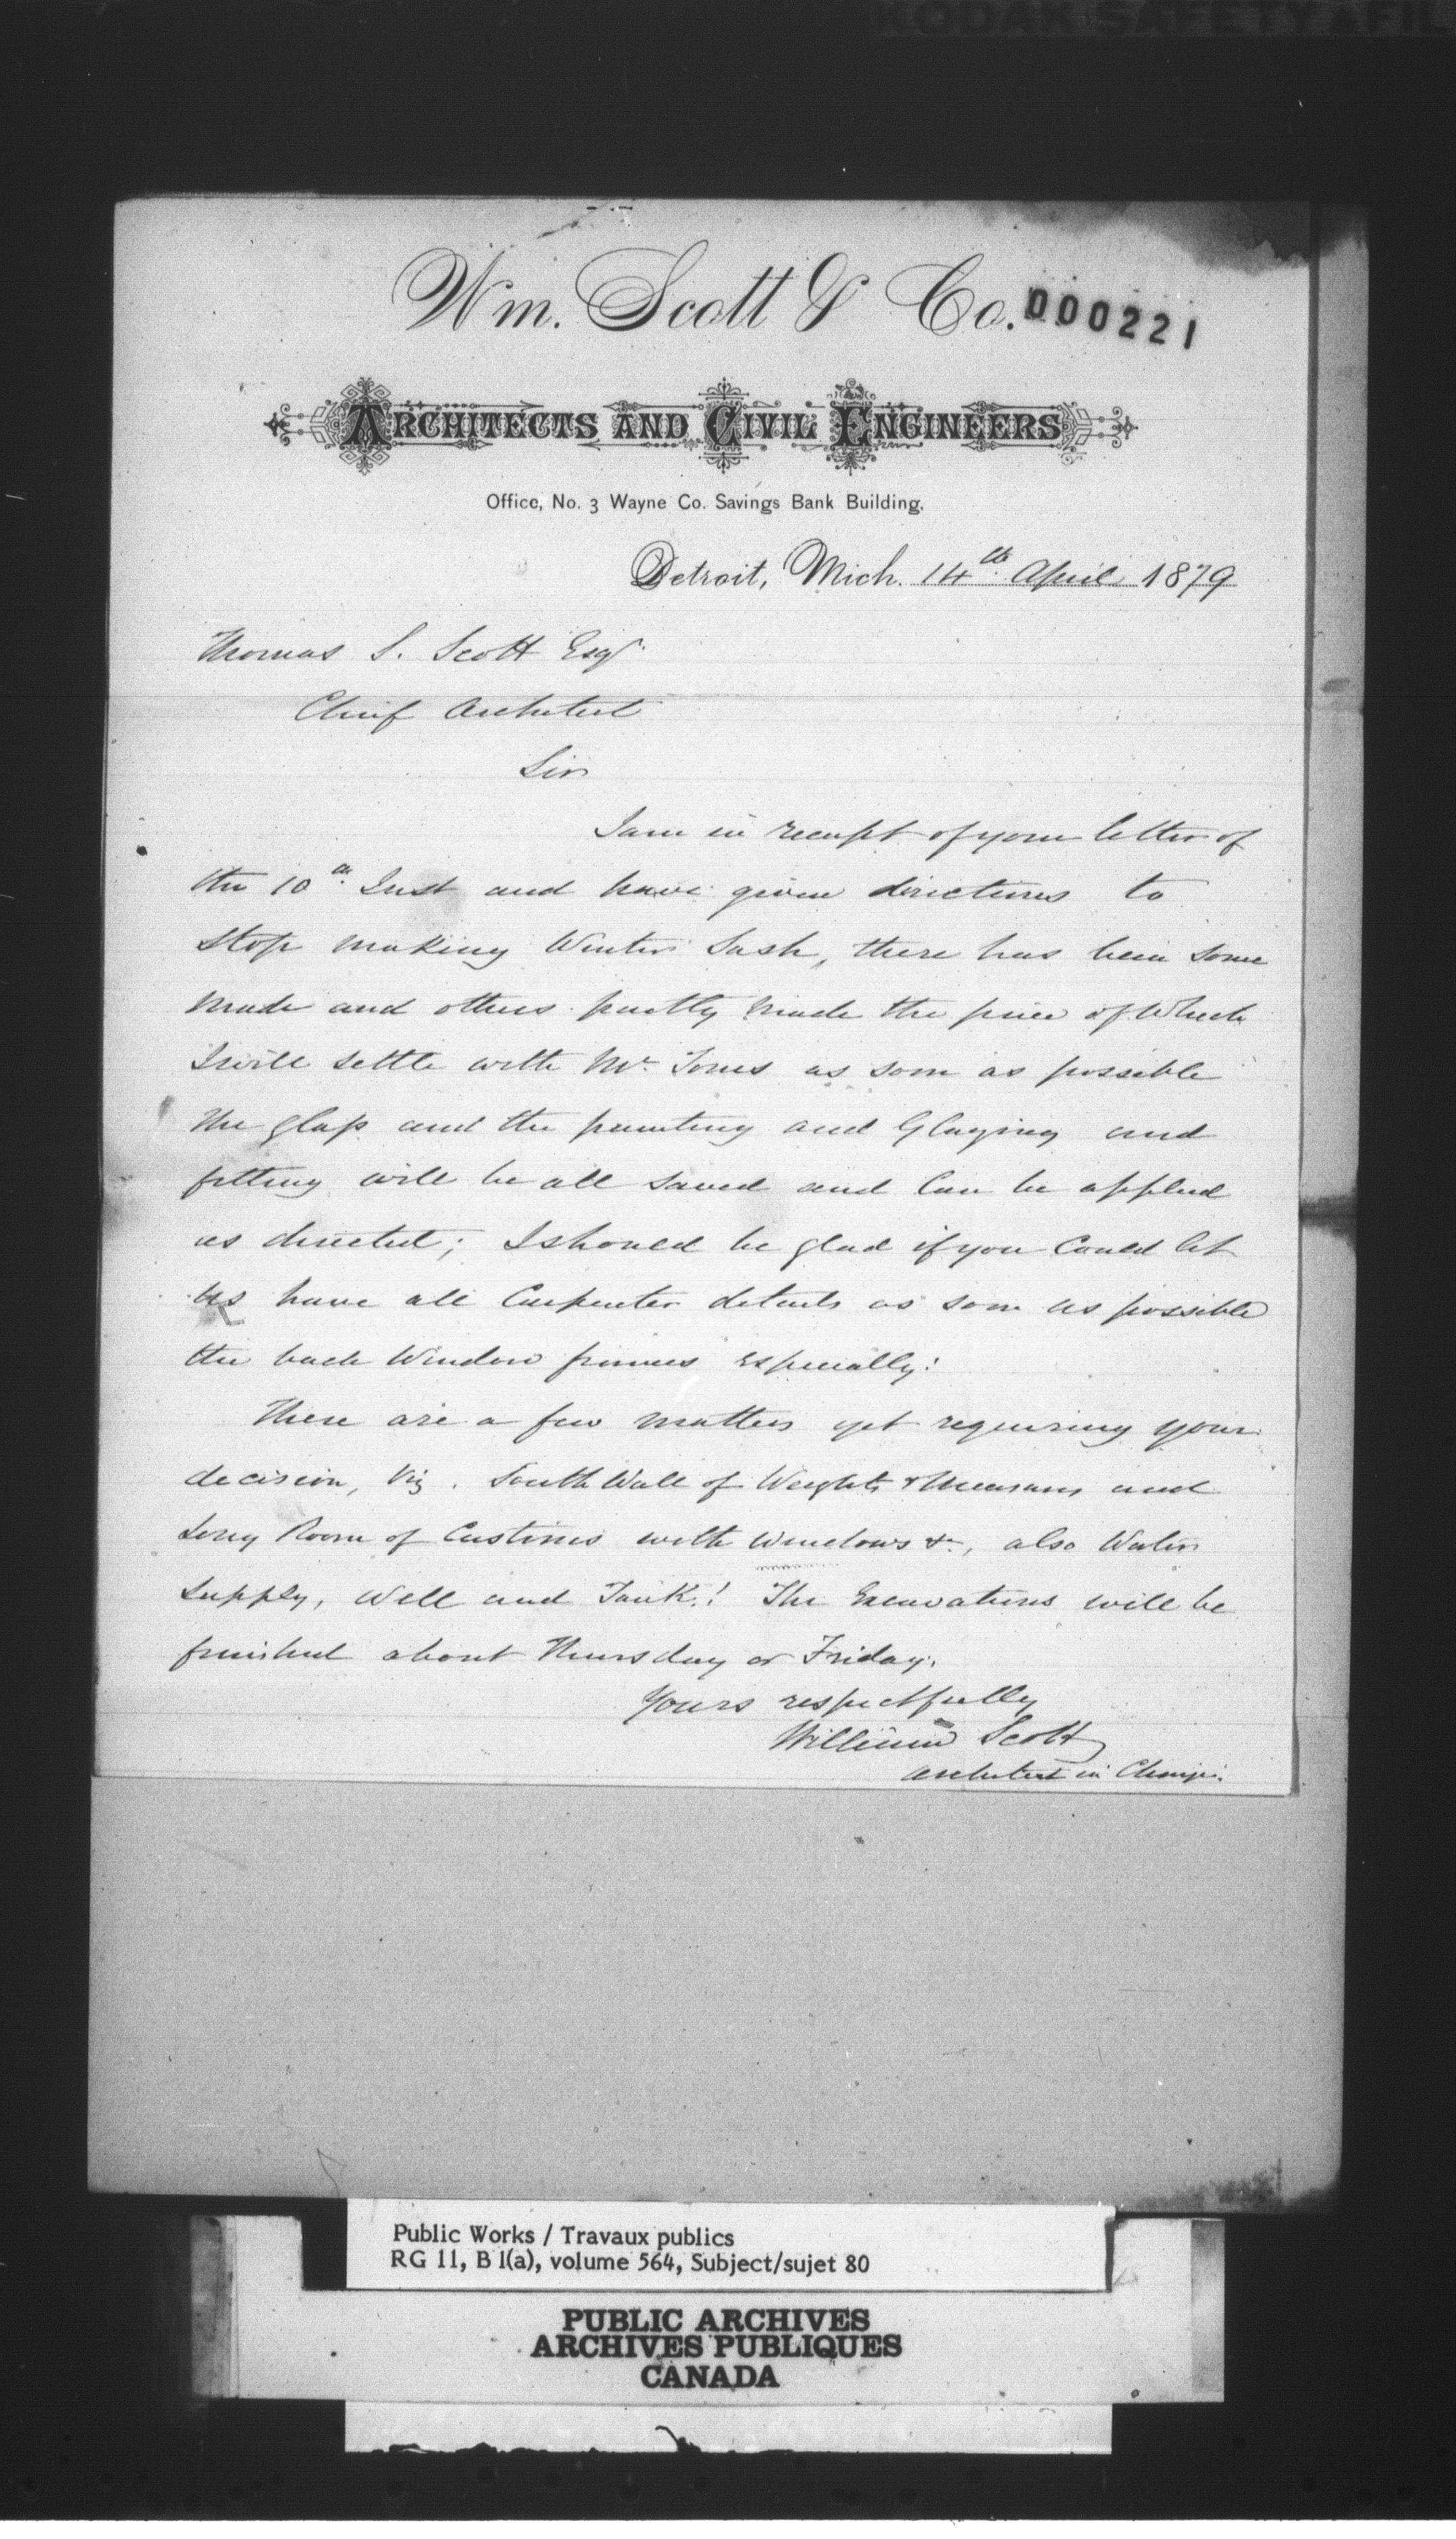 KODAK SAFETY FIL
Wm. Scott & Co.
000221
ARCHITECTS AND CIVIL ENGINEERS
Office, No. 3 Wayne Co. Savings Bank Building.
Detroit, Mich. 14th April 1879
Thomas S. Scott Esqr
Chief Architect
Sir
I am in receipt of your letter of
the 10th Inst and have given directions to
stop making Winter Sash, there has been some
made and others partly made the price of which
I will settle with Mr. Jones as soon as possible
the glass and the painting and Glazing and
fitting will be all saved and can be applied
as directed; I should be glad if you could let
us have all Carpenter details as soon as possible
the back Window frames especially:
There are a few matters yet requiring your
decision, Viz. South Wall of Weights & Measures and
Long Room of Customs with windows &c, also Water
supply, Well and Tank.! The Excavations will be
finished about Thursday or Friday.
Yours respectfully
William Scott
Architect in Charge.
Public Works / Travaux publics
RG 11, B 1(a), volume 564, Subject/sujet 80
PUBLIC ARCHIVES
ARCHIVES PUBLIQUES
CANADA